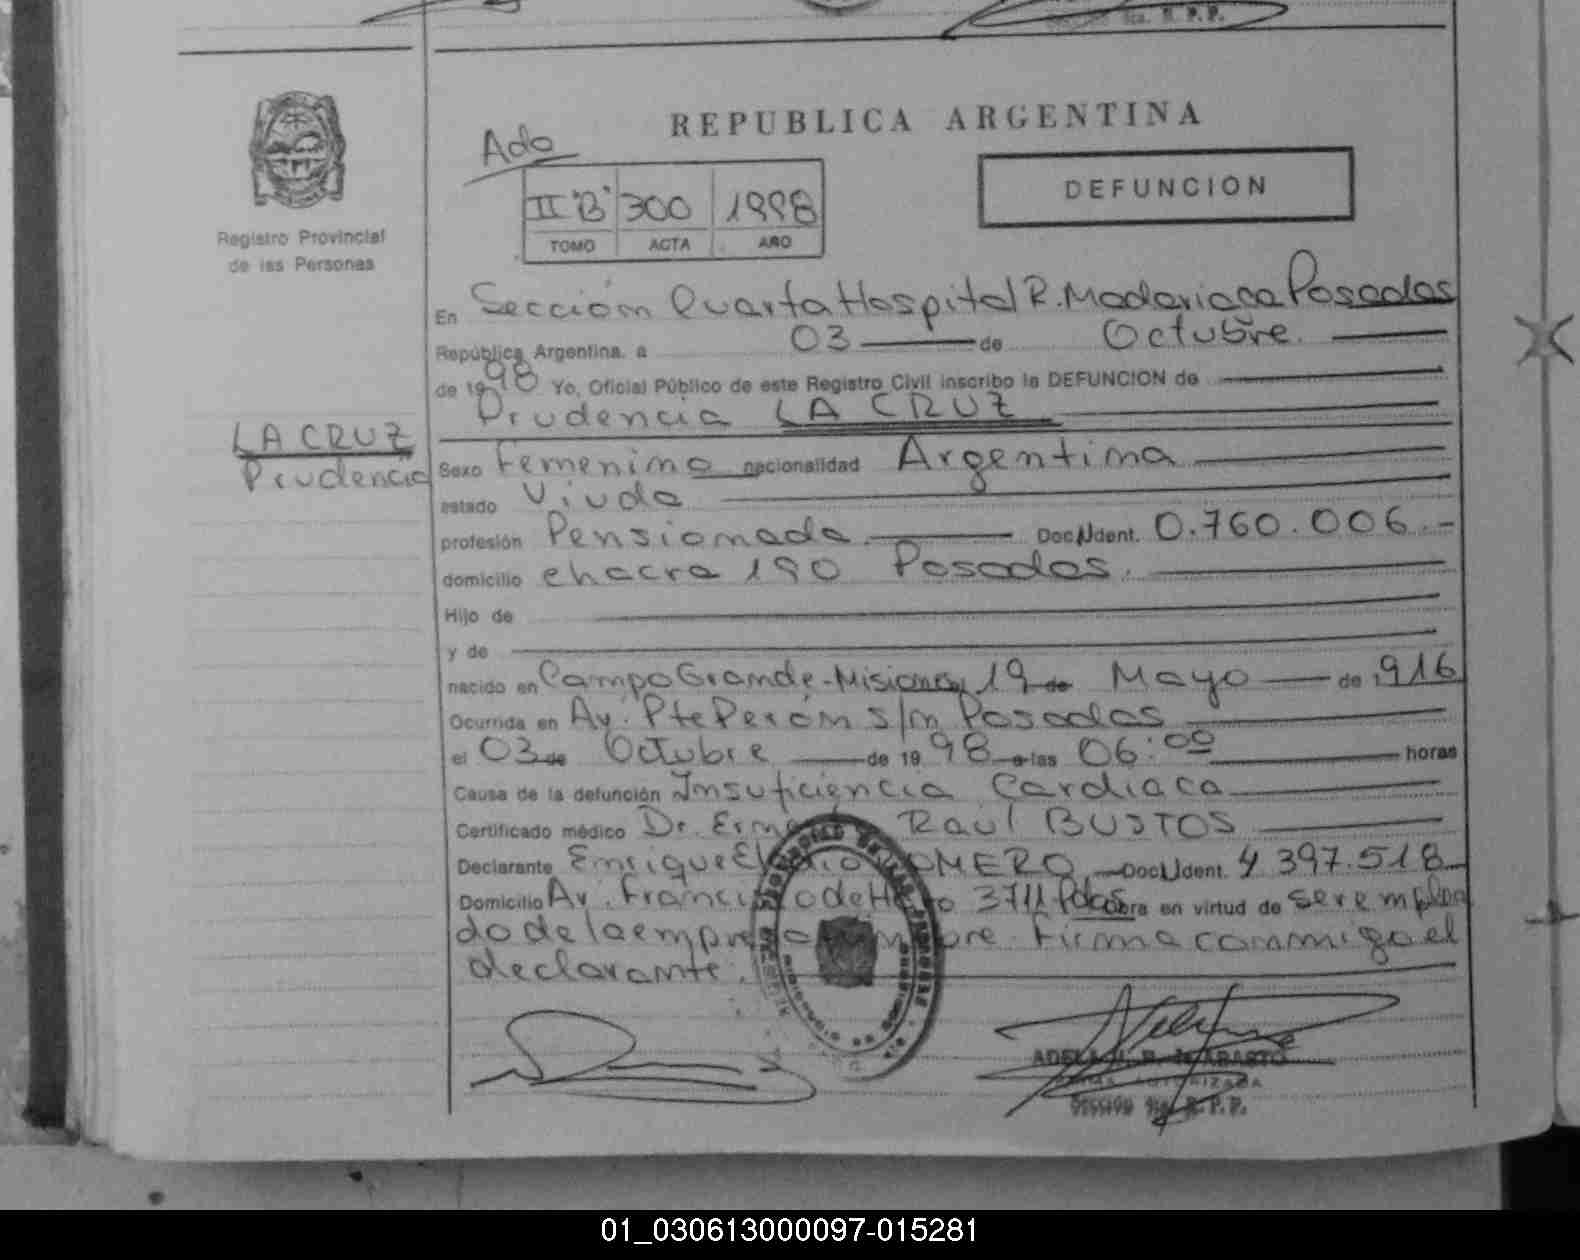 REPUBLICA ARGENTINA
Ado
II "B" 300 1998
TOMO ACTA AÑO
DEFUNCION
Registro Provincial
de las Personas
En Sección Cuarta Hospital R. Madariaga Posadas
República Argentina, a 03 de Octubre.
de 1998 Yo, Oficial Público de este Registro Civil inscribo la DEFUNCION de
Prudencia LA CRUZ
LA CRUZ
Prudencia
Sexo Femenino nacionalidad Argentina
estado Viuda
profesión Pensionada Doc. Ident. 0.760.006.-
domicilio chacra 190 Posadas.
Hijo de
y de
nacido en Campo Grande-Misiones 19 de Mayo de 1916
Ocurrida en Av. Pte Perón s/n Posadas
el 03 de Octubre de 1998 a las 06:00 horas
Causa de la defunción Insuficiencia Cardiaca
Certificado médico Dr. Raúl BUSTOS
Declarante Enrique ROMERO Doc. Ident. 4 397.518
Domicilio Av. de Haro 3711 Pdas obra en virtud de ser emplea
do de la empresa Firma conmigo el
declarante.
FIRMA AUTORIZADA
Sección 4ta. R.P.P.
01_030613000097-015281